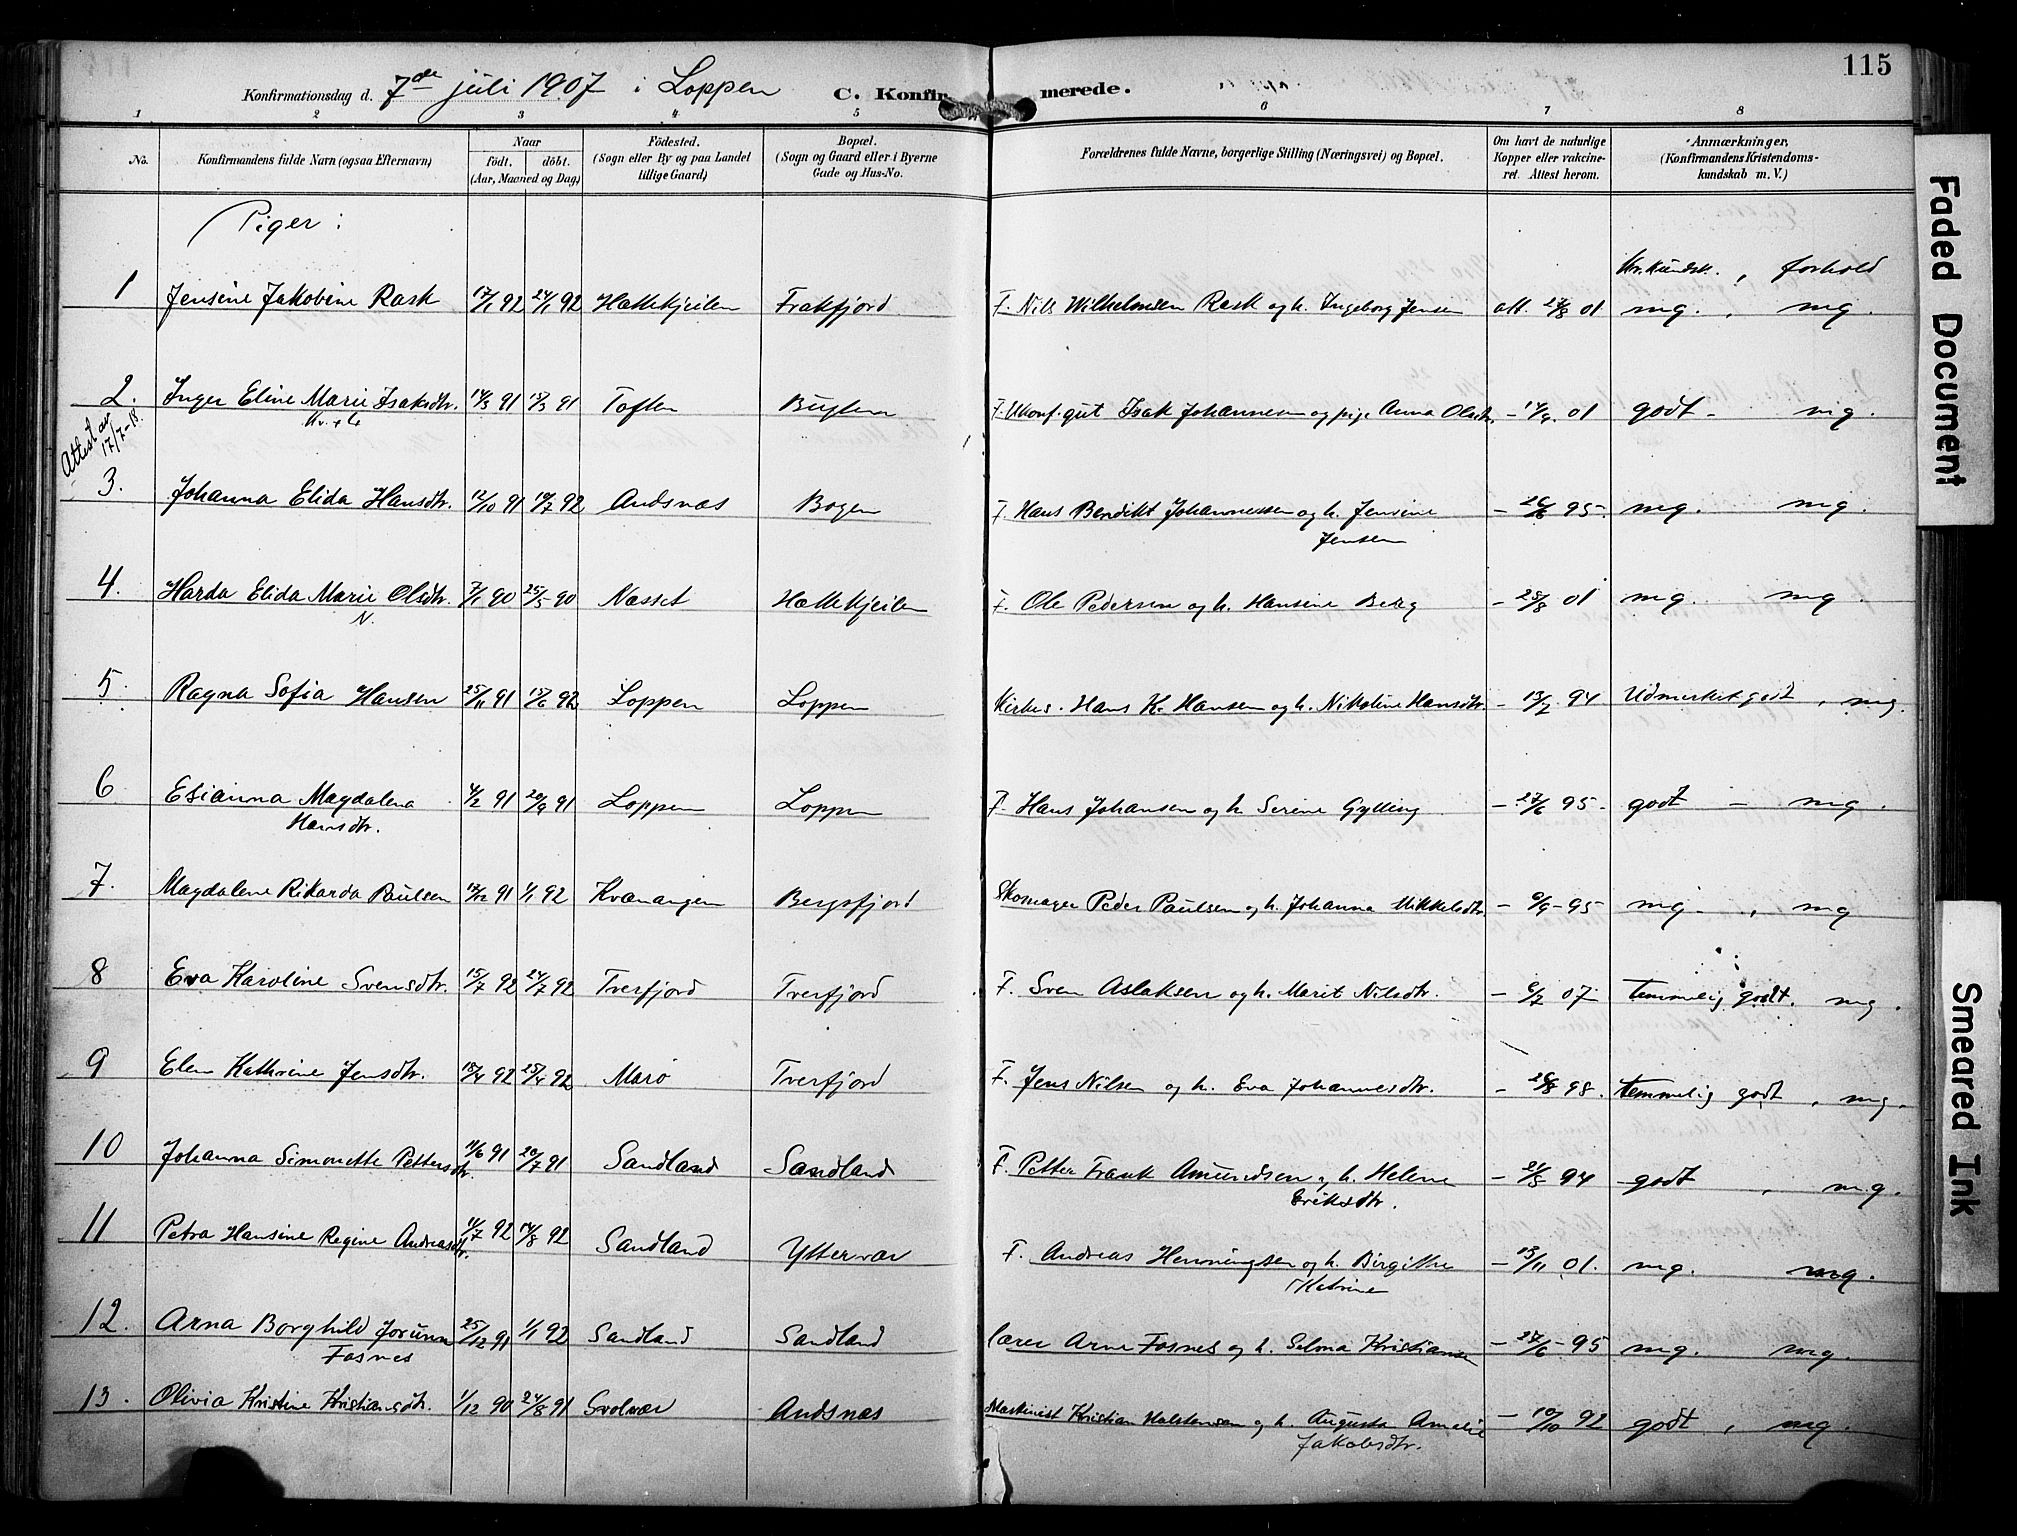 115
Konfirmationsdag d. 7de juli 1907 i Loppen C. Konfirmerede.
1 2 3 4 5 6 7 8
No. Konfirmandens fulde Navn (ogsaa Efternavn) Naar födt. döbt. (Aar, Maaned og Dag) Födested. (Sogn eller By og paa Landet tillige Gaard) Bopæl. (Sogn og Gaard eller i Byerne Gade og Hus-No. Forældrenes fulde Navne, borgerlige Stilling (Næringsvei) og Bopæl. Om havt de naturlige Kopper eller vakcineret. Attest herom. Anmærkninger, (Konfirmandens Kristendomskundskab m. V.)
Piger:
Kr. kundsk., forhold
1 Jensine Jakobine Rask 17/1 92 24/1 92 Hattekjeilen Frakfjord F. Nils Wilhelmsen Rask og h. Ingeborg Jensen att. 27/8 01 mg. , mg.
2. Inger Eline Marie Isaksdtr. 14/3 91 17/3 91 Toften Buglen F. Ukonf. gut Isak Johannesen og pige Anna Olsdtr. - 14/9 01 godt - mg.
Attest av 17/7-18.
3. Johanna Elida Hansdtr. 12/10 91 19/7 92 Andsnæs Bogen F. Hans Bendikt Johannessen og h. Jensine - 26/6 95. mg. mg.
Jensen
4 Harda Elida Marie Olsdtr. 7/1 90 25/5 90 Næsset Hattekjeilen F. Ole Pedersen og h. Hansine Berg - 28/8 01 mg. mg.
N.
5. Ragna Sofia Hansen 25/11 91 15/6 92 Loppen Loppen Kirkes. Hans K. Hansen og h. Nikoline Hansdtr. - 13/7 94 Udmerket godt, mg.
6 Esianna Magdalena 4/2 91 20/9 91 Loppen Loppen F. Hans Johansen og h. Serine Gylling - 27/6 95. godt - mg.
Hansdtr.
7. Magdalene Rikarda Paulsen 17/12 91 1/1 92 Kvænangen Bergsfjord Skomager Peder Paulsen og h. Johanna Mikkelsdtr. - 6/9-95 mg. , mg
8 Eva Karoline Svensdtr. 15/7 92 24/7 92 Tverfjord Tverfjord F. Sven Aslaksen og h. Marit Nilsdtr. - 6/7 07 temmelig godt. mg.
9 Elen Kathrine Jensdtr. 15/4 92 25/4 92 Marø Tverfjord F. Jens Nilsen og h. Eva Johannesdtr. - 26/8 98. temmelig godt, mg.
10 Johanna Simonette Pettersdtr. 11/6 91 20/7 91 Sandland Sandland F. Petter Frank Amundsen og h. Helene - 21/8 94 godt , mg.
Eriksdtr.
11 Petra Hansine Regine Andreasdtr. 11/7 92 14/8 92 Sandland Yttervær F. Andreas Henningsen og h. Birgithe - 13/11 01. mg. mg.
Katrine
12. Arna Borghild Jorunn 25/12 91 1/1 92 Sandland Sandland lærer Arne Fosnes og h. Selma Kristiansen - 27/6-95 mg. mg.
Fosnes
13. Olivia Kristine Kristiansdtr. 1/12 90 24/8 91 Svolvær Andsnæs Maskinist Kristian Halstensen og h. Augusta Amelie - 10/10 92 godt, mg.
Jakobsdtr.
Faded Document
Smeared Ink